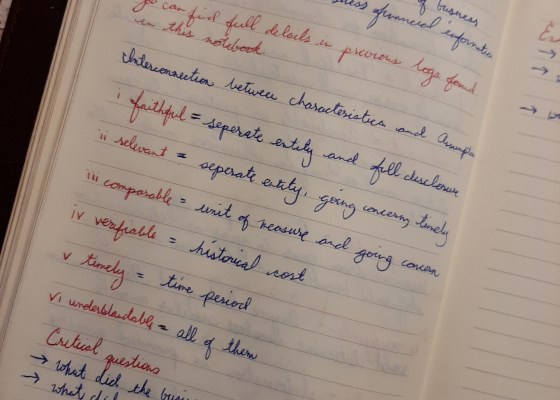 of business
ness financial information
go can find full details in previous logs found
in this notebook.
Interconnection between characteristics and Assump
i faithful = seperate entity and full disclosure
ii relevant = seperate entity, going concern, timely
iii comparable = unit of measure and going concern
iv verifiable = historical cost
v timely = time period
vi understandable = all of them
Critical questions
→ what did the busi
→ what did